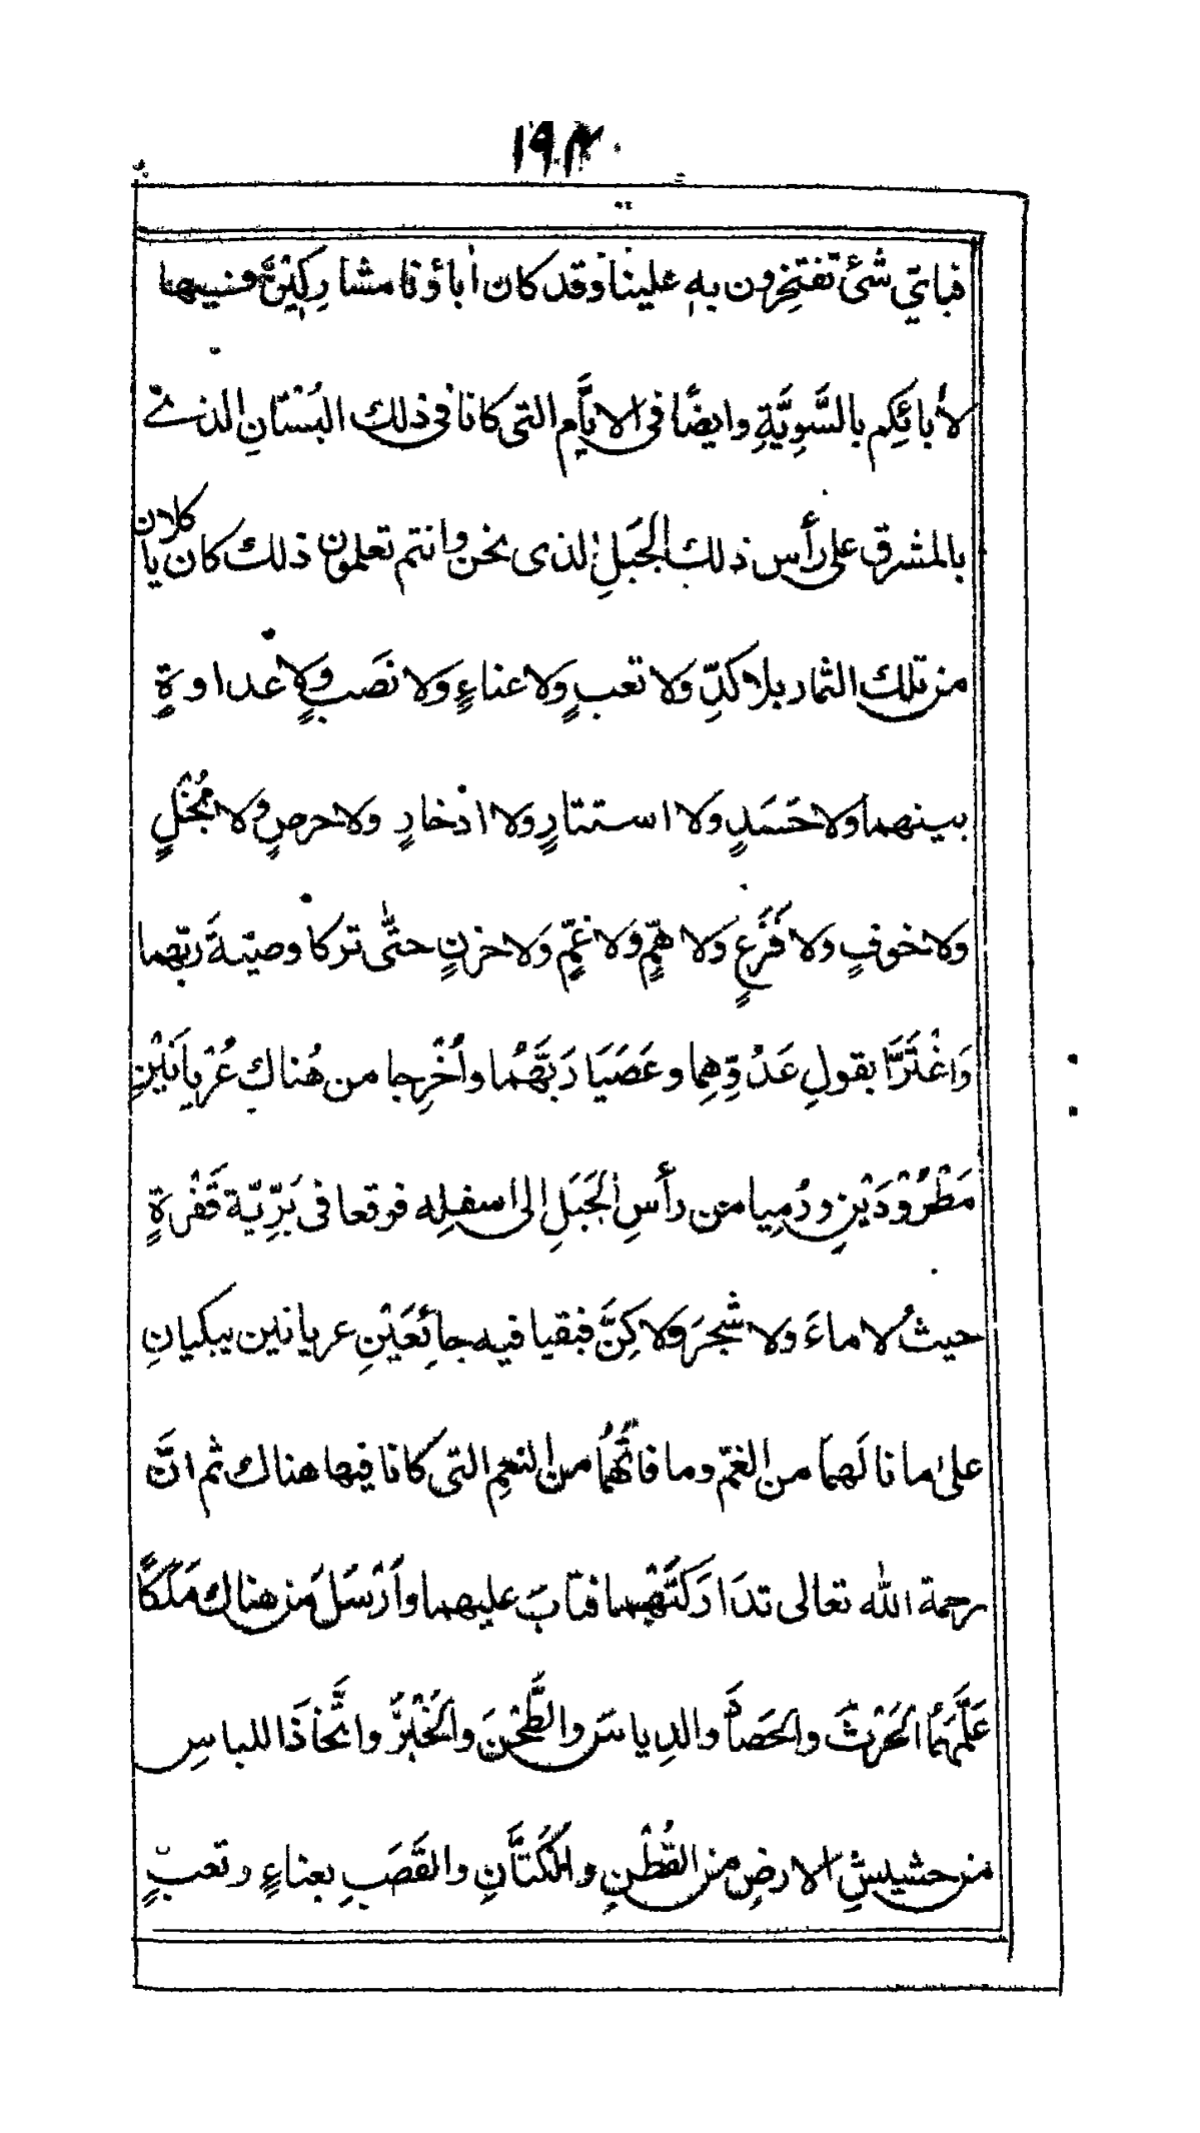 ١٩٣
فبايّ شئ تفتخِرون بهٖ علينا وقد كان اٰباؤنا مشارِكِيْنَ فيها
لأبائِكم بالسَّوِيَّةِ وايضًا فى الايَّام التى كانا فى ذلك البُسْتانِ الذى
بالمشرق على رأس ذلك الجَبَلِ الذى نحن وانتم تعلمون ذلك كان ياكلان
من تلك الثمار بلا كدٍّ ولا تعبٍ ولا عناءٍ ولا نَصَبٍ ولا عداوةٍ
بينهما ولا حَسَدٍ ولا استتارٍ ولا ادْخارٍ ولا حرصٍ ولا بُخْلٍ
ولا خوفٍ ولا فَزَعٍ ولا هَمٍّ ولا غَمٍّ ولا حزنٍ حتّٰى تركا وصيّةَ ربّهما
وَاغْتَرَّا بقولِ عَدُوِّهِما وعَصَيَا رَبَّهُما واُخْرِجا من هُناك عُرْيانَيْنِ
مَطْرُوْدَيْنِ ورُمِيا من رأسِ الجَبَلِ الى اسفلِه فوقعا فى بَرِّيّة قَفْرةٍ
حيثُ لا ماءَ ولا شَجَرَ ولا كِنَّ فبقيا فيه جائِعَيْنِ عريانين يبكيانِ
على ما نالَهما من الغمّ وما فاتَهُما من النعِم التى كانا فيها هناك ثم انَّ
رحمة الله تعالى تدَارَكَتْهما فتابَ عليهما وأَرْسَلَ من هناك مَلَكًا
عَلَّمَهُما الحَرْثَ والحَصادَ والدِياسَ والطَّحْنَ والخَبْزَ واتَّخاذَا اللباسِ
من حشيشِ الارضِ من القُطْنِ والكُتَّانِ والقَصَبِ بعناءٍ وتعبٍ